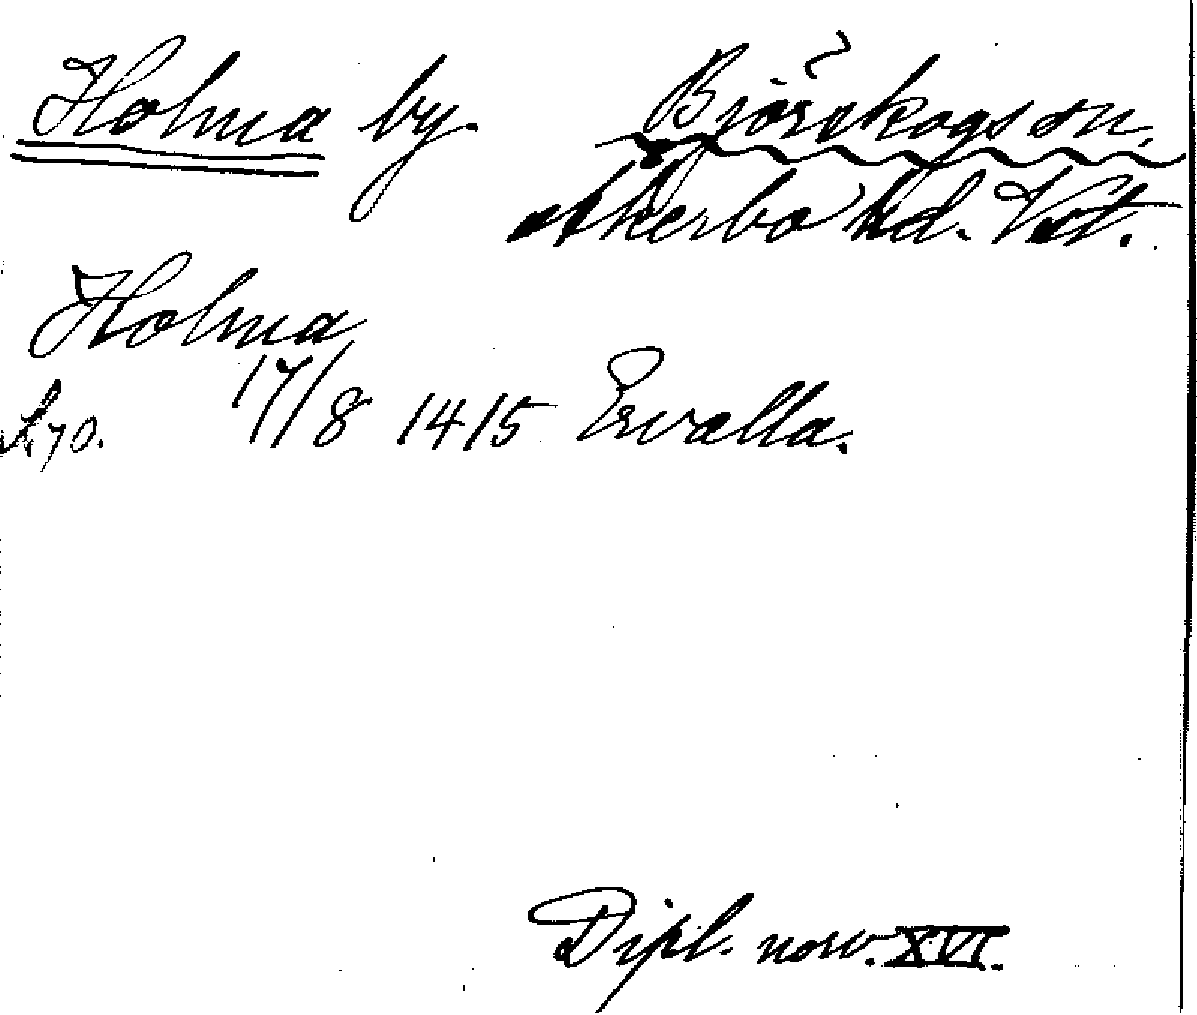 Holma by. Björskogs sn.
Åkerbo hd. Vst.
Holma
s. 70. 17/8 1415 Ervalla.
Dipl. norv. XVI.